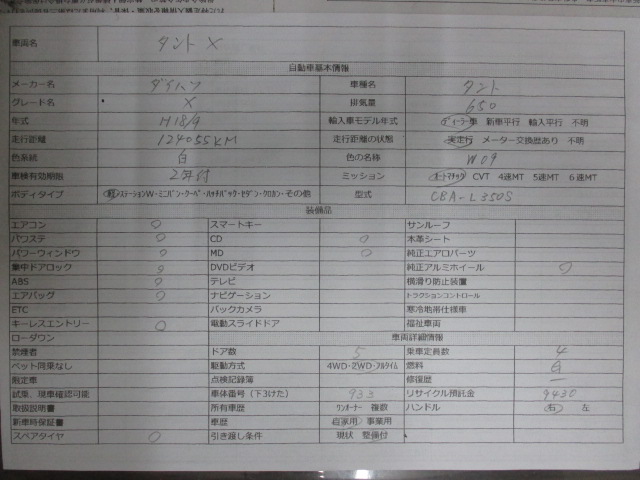 車両名 タント X
自動車基本情報
メーカー名 ダイハツ 車種名 タント
グレード名 X 排気量 650
年式 H18/9 輸入車モデル年式 ディーラー車 新車平行 輸入平行 不明
走行距離 124055KM 走行距離の状態 実走行 メーター交換歴あり 不明
色系統 白 色の名称 W09
車検有効期限 2年付 ミッション オートマチック CVT 4速MT 5速MT 6速MT
ボディタイプ 軽・ステーションW・ミニバン・クーペ・ハッチバック・セダン・クロカン・その他 型式 CBA-L350S
装備品
エアコン ○ スマートキー サンルーフ
パワステ ○ CD ○ 本革シート
パワーウィンドウ ○ MD ○ 純正エアロパーツ
集中ドアロック ○ DVDビデオ 純正アルミホイール ○
ABS ○ テレビ 横滑り防止装置
エアバッグ ○ ナビゲーション トラクションコントロール
ETC バックカメラ 寒冷地帯仕様車
キーレスエントリー ○ 電動スライドドア 福祉車両
ローダウン 車両詳細情報
禁煙者 ドア数 5 乗車定員数 4
ペット同乗なし 駆動方式 4WD・2WD・フルタイム 燃料
限定車 点検記録簿 修復歴 ー
試乗、現車確認可能 車体番号（下3けた） 933 リサイクル預託金 9430
取扱説明書 所有歴 ワンオーナー 複数 ハンドル 右 左
新車時保証書 車歴 自家用 事業用
スペアタイヤ ○ 引き渡し条件 現状 整備付